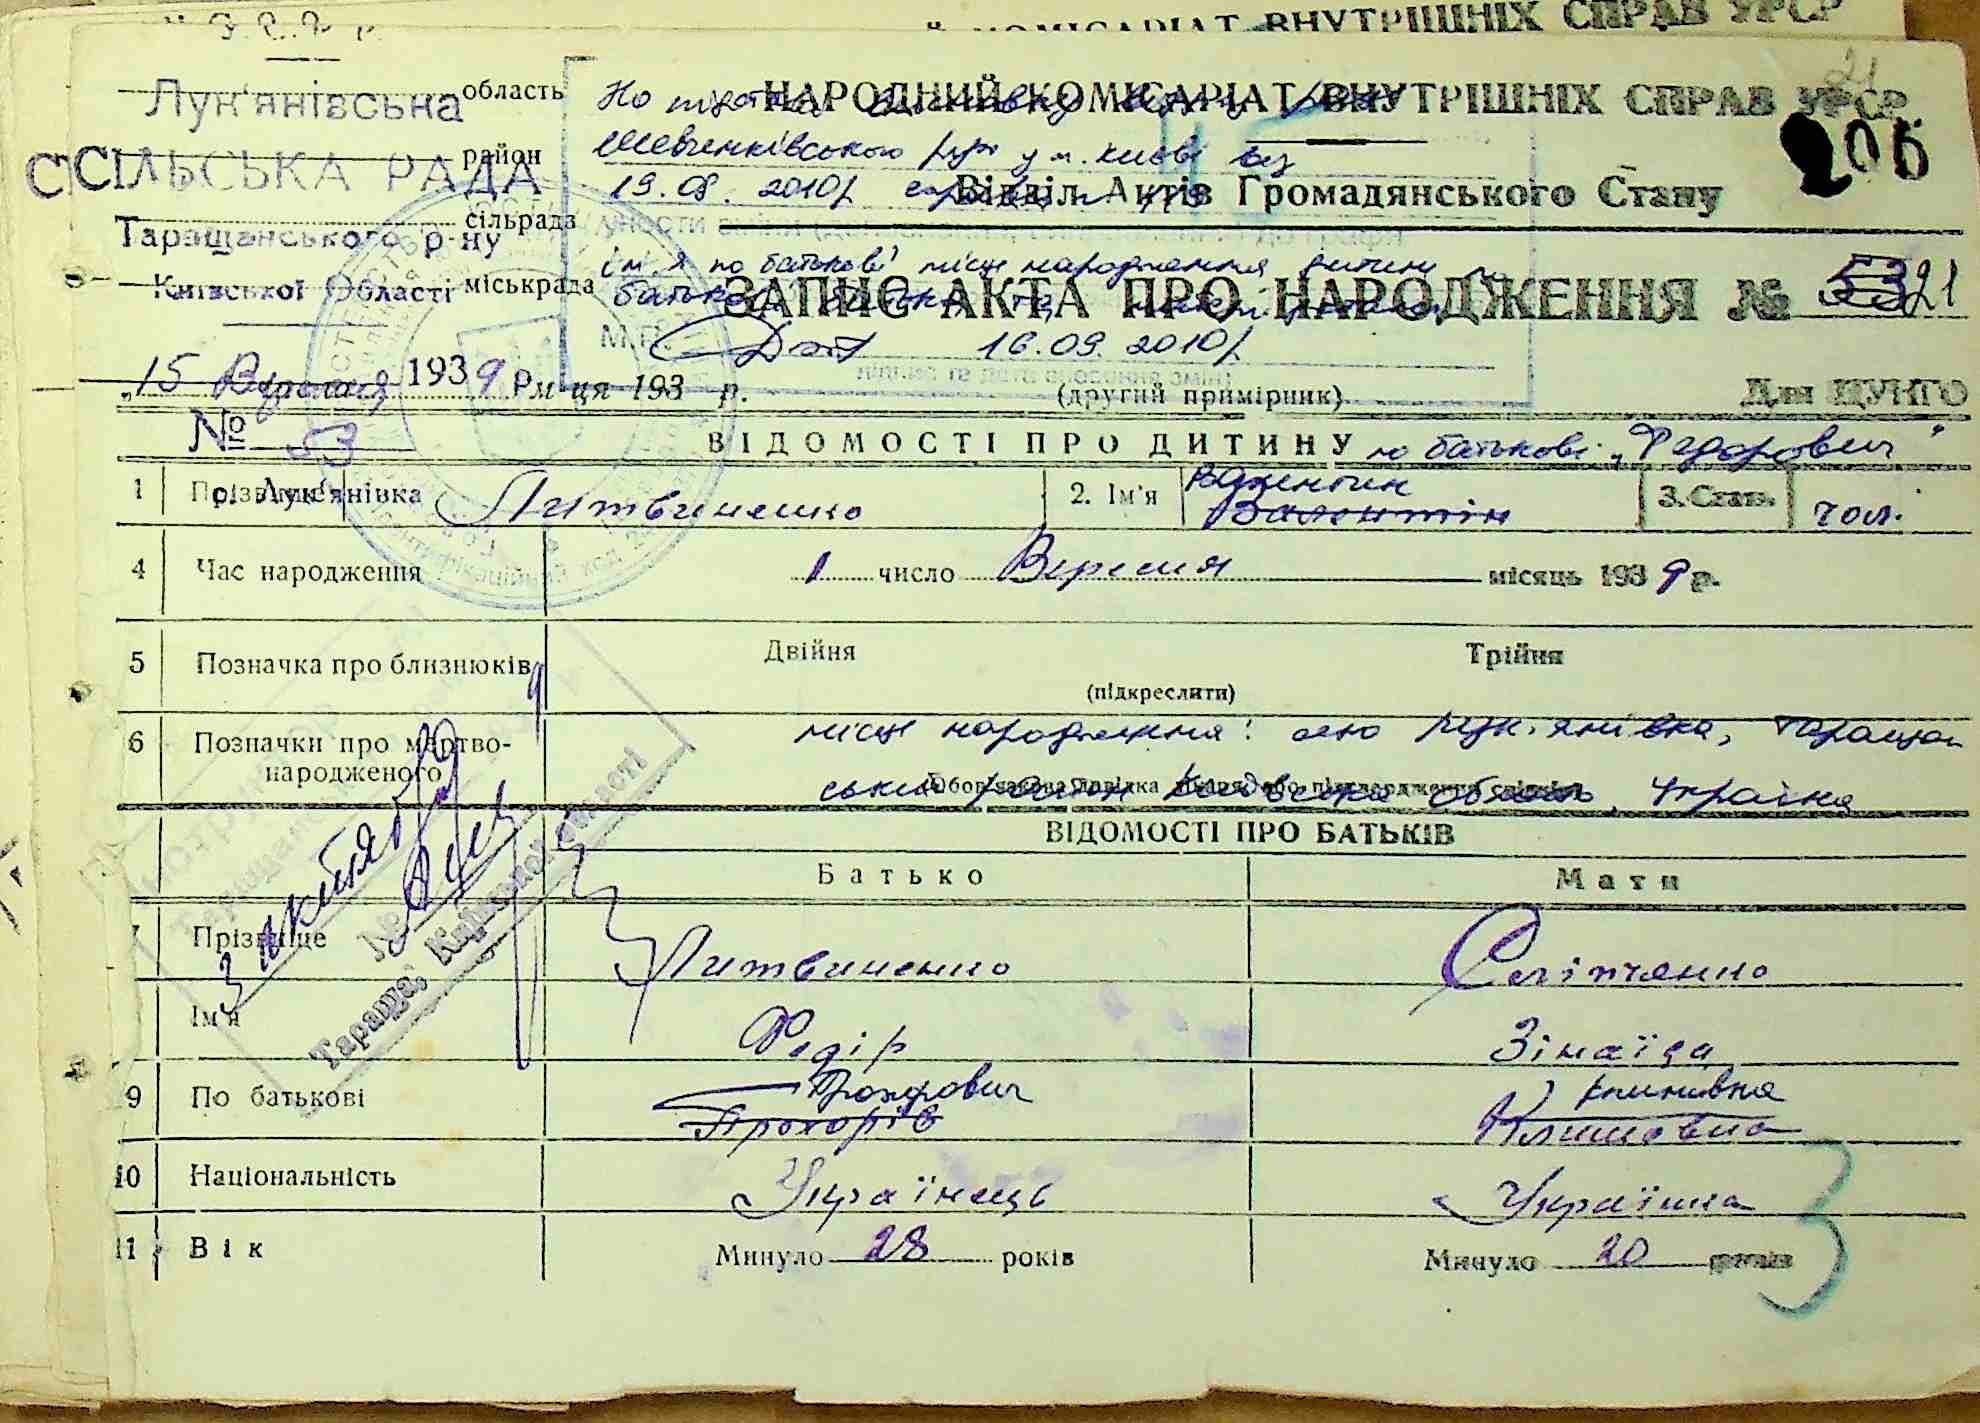 КОМІСАРІАТ ВНУТРІШНІХ СПРАВ УРСР
21
Лук'янівська область
НАРОДНИЙ КОМІСАРІАТ ВНУТРІШНІХ СПРАВ УРСР
206
СІЛЬСЬКА РАДА район
Шевченківського у м. Києві від
19.08.2010р
Відділ Актів Громадянського Стану
сільрада
Таращанського р-ну
ім'я по батькові місце народження дитини
Київської Області міськрада
ЗАПИС АКТА ПРО НАРОДЖЕННЯ № 53 21
М.П.
16.09.2010р
„15 Вересня 1939 р м-ця 193 р.
(другий примірник)
Для ЦУНГО
№ 53
ВІДОМОСТІ ПРО ДИТИНУ по батькові: „Федорович"
1 Прізвище с. Лук'янівка Литвиненко 2. Ім'я Валентин Валентін 3. Стать чол.
4 Час народження 1 число Вересня місяць 1939 р.
5 Позначка про близнюків Двійня Трійня
(підкреслити)
6 Позначки про мертво-
народженого
місце народження: село Лук'янівка, Таращан
ський район Київська область, Україна
ВІДОМОСТІ ПРО БАТЬКІВ
Батько Мати
7 Прізвище Литвиненко
Тараща, Київської області
Ім'я Федір Зінаїда
9 По батькові Прохорович Климівна
Прохорів Климовна
10 Національність Українець Українка
11 Вік Минуло 28 років Минуло 20 років
3